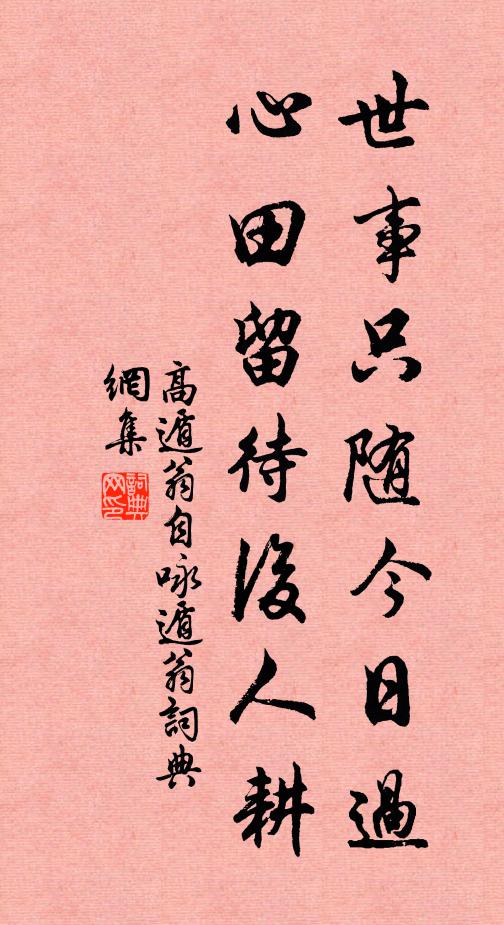 世事只随今日過
心田留待後人耕
高遁翁自咏遁翁詞典
網集
詞典
网印